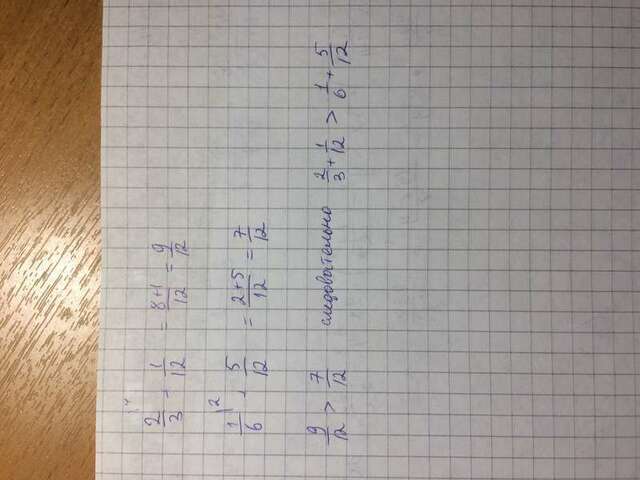 2/3 |4 + 1/12 = 8+1/12 = 9/12
1/6 |2 + 5/12 = 2+5/12 = 7/12
9/12 > 7/12 следовательно 2/3 + 1/12 > 1/6 + 5/12